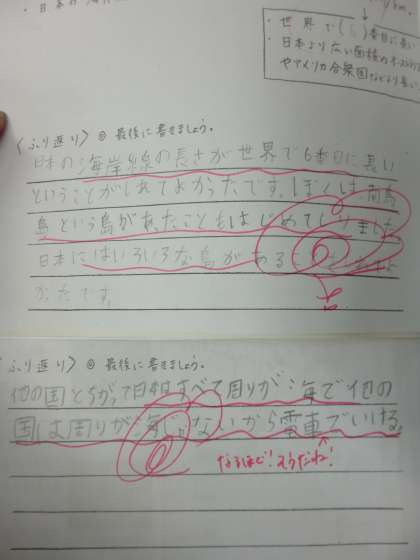 ・世界で(6)番目に長い
・日本より広い面積の
やアメリカ合衆国などより長い
〈ふり返り〉◎最後に書きましょう。
日本の海岸線の長さが世界で6番目に長い
ということがしれてよかったです。ぼくは、南鳥
島という島があったこともはじめてしりました。
日本にはいろいろな島がある
かったです。
〈ふり返り〉◎最後に書きましょう。
他の国とちがって日本はすべて周りが海で他の
国は周りが海じゃないから電車でいける。
なるほど!そうだね!